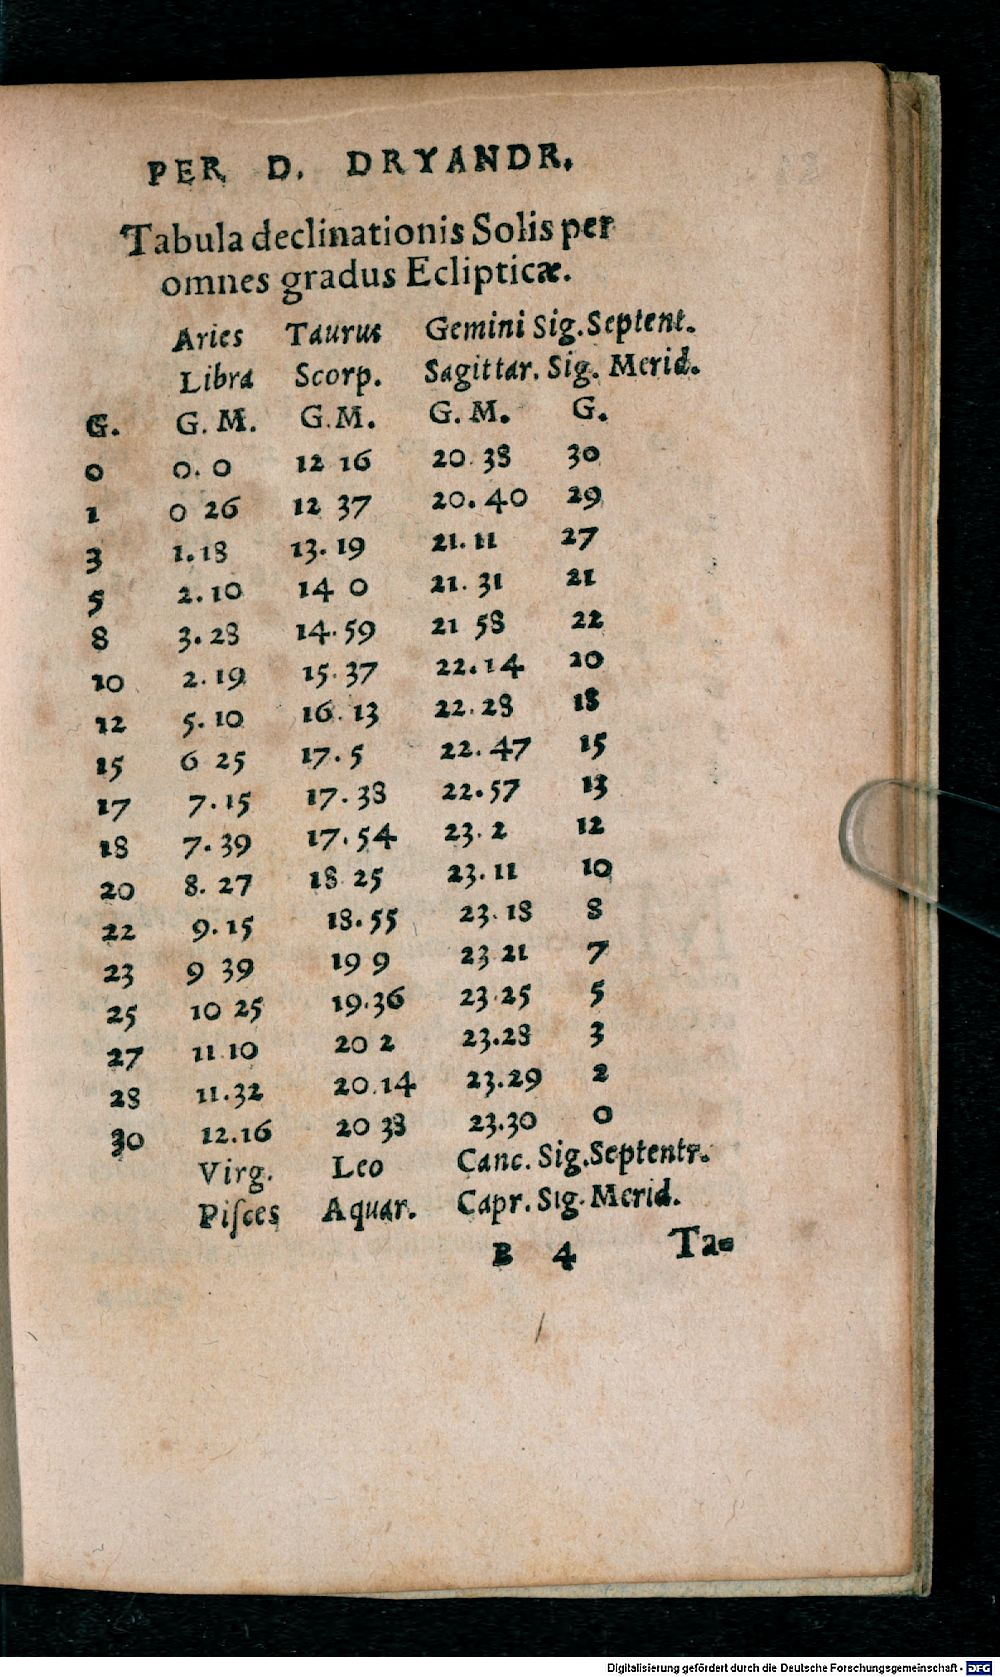 PER D. DRYANDR.
Tabula declinationis Solis per
omnes gradus Eclipticæ.
Aries Taurus Gemini Sig. Septent.
Libra Scorp. Sagittar. Sig. Merid.
G. G. M. G. M. G. M. G.
0 0. 0 12 16 20. 38 30
1 0 26 12 37 20. 40 29
3 1. 18 13. 19 21. 11 27
5 2. 10 14 0 21. 31 21
8 3. 28 14. 59 21 58 22
10 2. 19 15. 37 22. 14 20
12 5. 10 16. 13 22. 28 18
15 6 25 17. 5 22. 47 15
17 7. 15 17. 38 22. 57 13
18 7. 39 17. 54 23. 2 12
20 8. 27 18 25 23. 11 10
22 9. 15 18. 55 23. 18 8
23 9 39 19 9 23 21 7
25 10 25 19. 36 23. 25 5
27 11. 10 20 2 23. 28 3
28 11. 32 20. 14 23. 29 2
30 12. 16 20 38 23. 30 0
Virg. Leo Canc. Sig. Septentr.
Piſces Aquar. Capr. Sig. Merid.
B 4 Ta=
Digitalisierung gefördert durch die Deutsche Forschungsgemeinschaft - DFG